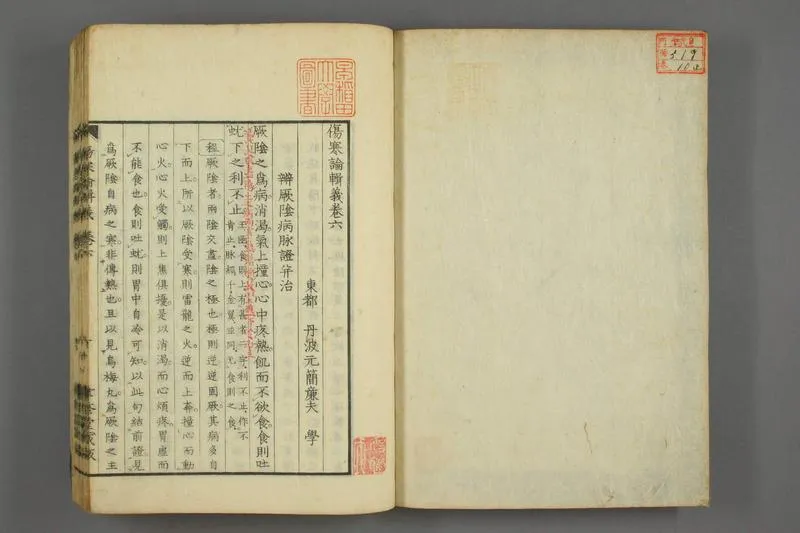 傷寒論輯義卷六
東都 丹波元簡廉夫 學
辨厥陰病脉證并治
厥陰之爲病消渴氣上撞心心中疼熱飢而不欲食食則吐
蚘下之利不止
程厥陰者兩陰交盡陰之極也極則逆逆固厥其病多自
下而上所以厥陰受寒則雷龍之火逆而上奔撞心而動
心火心火受觸則上焦俱擾是以消渴而心煩疼胃虛而
不能食也食則吐蚘則胃中自冷可知以此句結前證見
爲厥陰自病之寒非傳熱也且以見烏梅丸爲厥陰之主
早稻田大學圖書
519
10